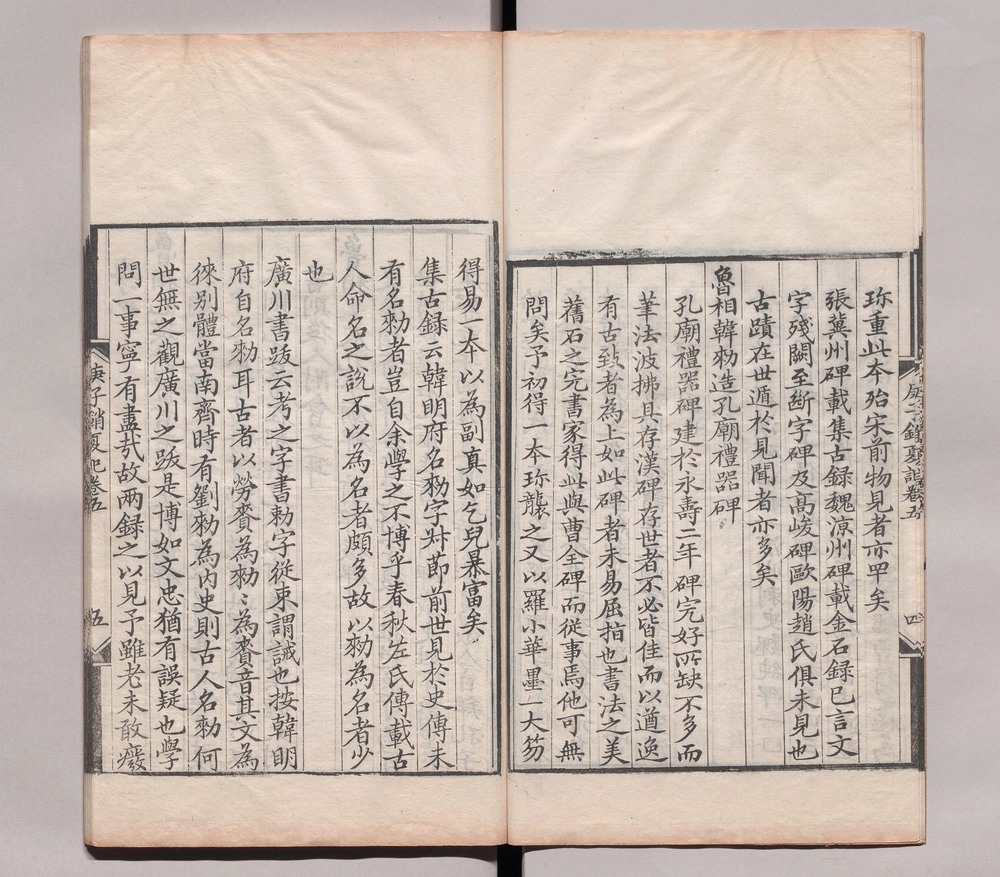 珎重此夲殆宋前物見者亦罕矣
張兾州碑載集古録魏凉州碑載金石録已言文
字殘闕至斷字碑及髙峻碑歐陽趙氏俱未見也
古蹟在世遁於見聞者亦多矣
魯相韓勑造孔廟禮器碑
孔廟禮器碑建於永壽二年碑完好所缺不多而
筆法波拂具存漢碑存世者不必皆佳而以遒逸
有古致者為上如此碑者未易屈指也書法之美
舊石之完書家得此與曹全碑而従事焉他可無
問矣予初得一夲珎襲之又以羅小華墨一大笏
四
得易一夲以為副真如乞兒暴富矣
集古録云韓明府名勑字叔節前世見於史傳未
有名勑者豈自余學之不博乎春秋左氏傳載古
人命名之説不以為名者頗多故以勑為名者少
也
廣川書跋云考之字書勅字従束謂誡也按韓明
府自名勑耳古者以勞賚為勑〻為賚音其文為
徠别體當南齊時有劉勑為内史則古人名勑何
世無之觀廣川之跋是博如文忠猶有誤疑也學
問一事寧有盡㢤故兩録之以見予雖老未敢癈
庚子銷夏記卷五
五